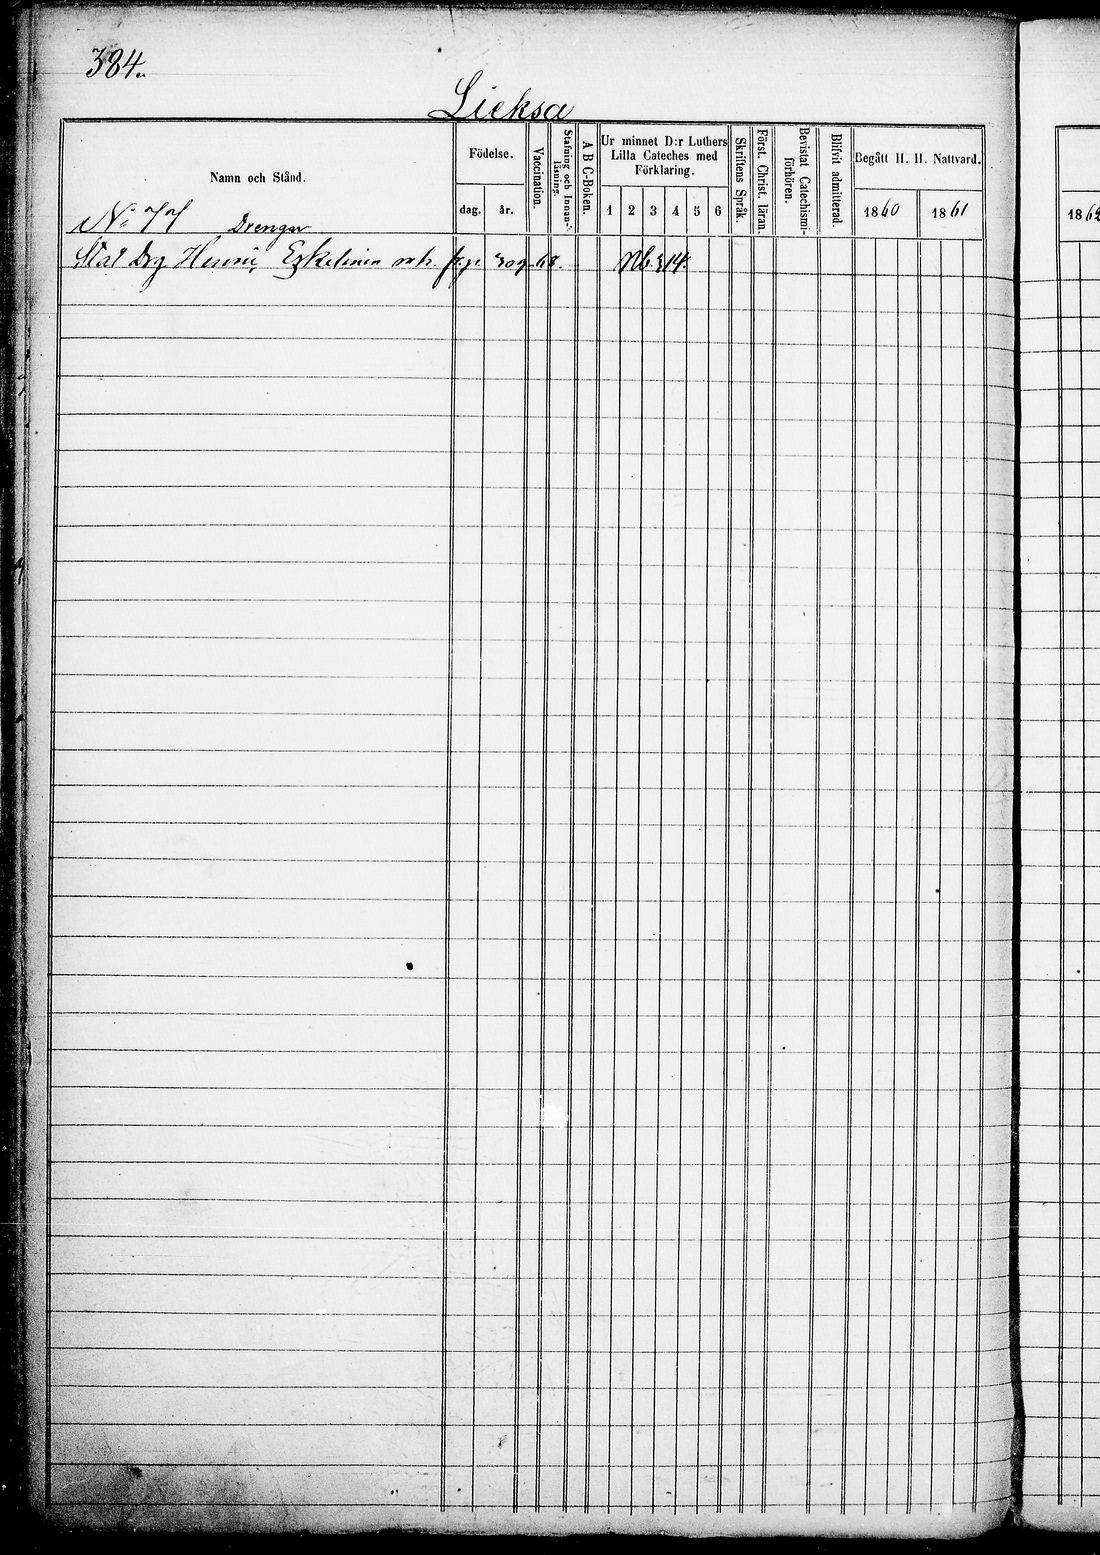 384.
Lieksa
Namn och Stånd.
Födelse.
dag. år.
Vaccination.
Stafning och Innan-
läsning.
A B C-Boken.
Ur minnet D:r Luthers
Lilla Cateches med
Förklaring.
1 2 3 4 5 6
Skriftens Språk.
Först. Christ. läran.
Bevistat Catechismi-
förhören.
Blifvit admitterad.
Begått H. H. Nattvard.
1860 1861
No 77 Drengar
Stat Drg Henric Eskelinen 309 68. 314.